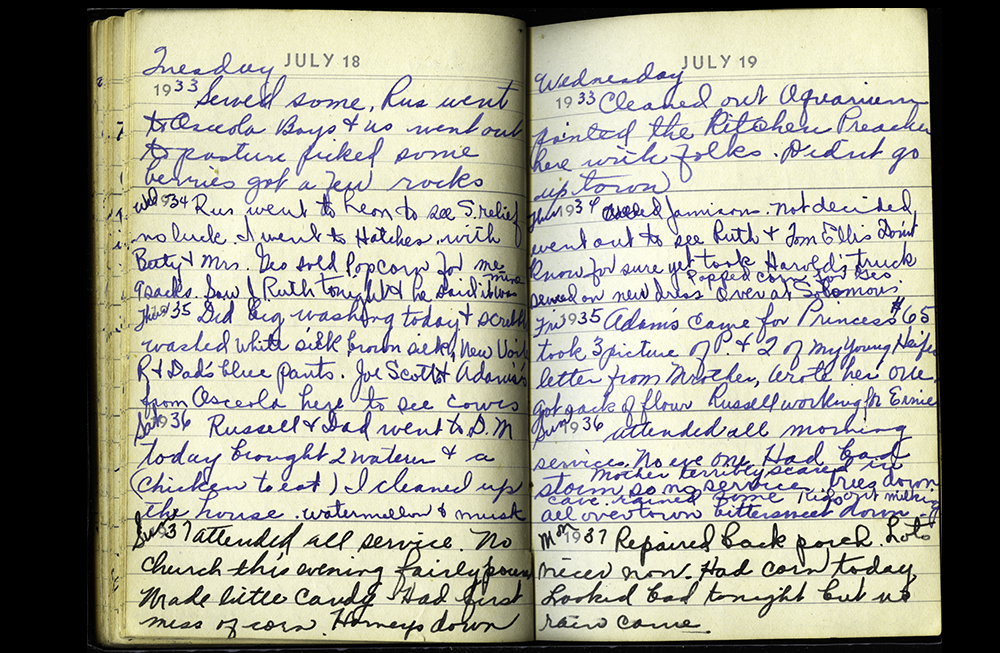 JULY 18
Tuesday
1933 Sewed some, Rus went
to Osceola Boys & us went out
to pasture picked some
berries got a few rocks
Wed 1934 Rus went to Leon to see S. relief
no luck. I went to Hatches with
Betty & Mrs. Geo sold Popcorn for me
9 sacks. Saw J Ruth tonight & he said it was mine
Thur 1935 Did big washing today & scrubb
washed white silk brown silk, New Voile
R & Dad's blue pants. Joe Scott & Adams's
from Osceola here to see cows
Sat 1936 Russell & Dad went to D. M
today brought 2 water & a
(Chicken to eat) I cleaned up
the house. watermellon & musk
Sun 1937 attended all service. No
church this evening fairly poun
Made little candy Had first
mess of corn. Homeys down
JULY 19
Wednesday
1933 Cleaned out Aquarium
painted the Kitchen Preacher
here with folks. Didnt go
up town
Thur 1934 Jamison. not decided
went out to see Ruth & Tom Ellis Don't
know for sure yet took Harold's truck
Popped corn for Geo
sewed on new dress Over at Solomons
Fri 1935 Adam's came for Princess $65
took 3 picture of P. & 2 of my young Heifer
letter from Mother, wrote her one.
got sack of flour Russell working for Ernie
Sun 1936 attended all morning
service. No eve one Had bad
Mother terribly scared in
storm so no service trees down
cave rained some Kids out milking
all over town bittersweet down
Mon 1937 Repaired back porch. Lots
nicer now. Had corn today
Looked bad tonight but no
rain came